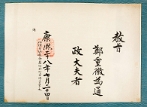 敎旨
鄭重徽爲通
政大夫者
康熙五十八年七月二十四日